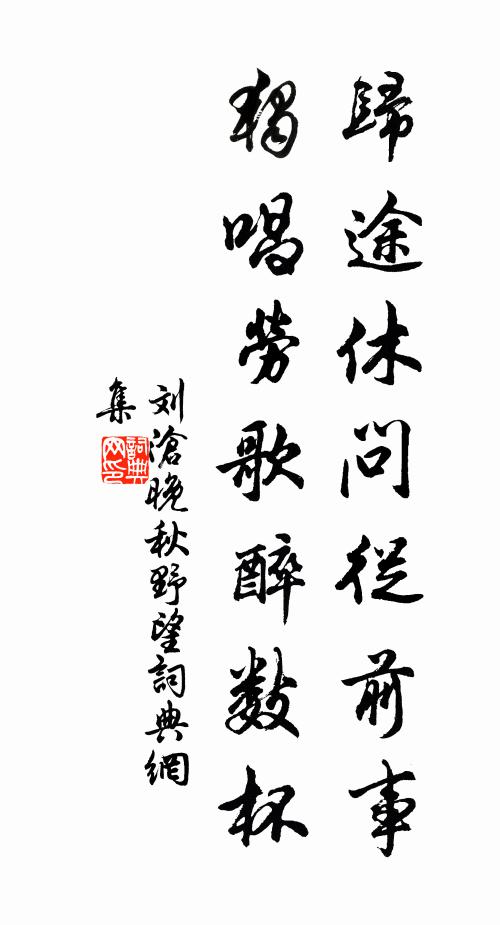 歸途休問從前事
獨唱勞歌醉數杯
刘滄晚秋野望詞典網
集
詞典
网印